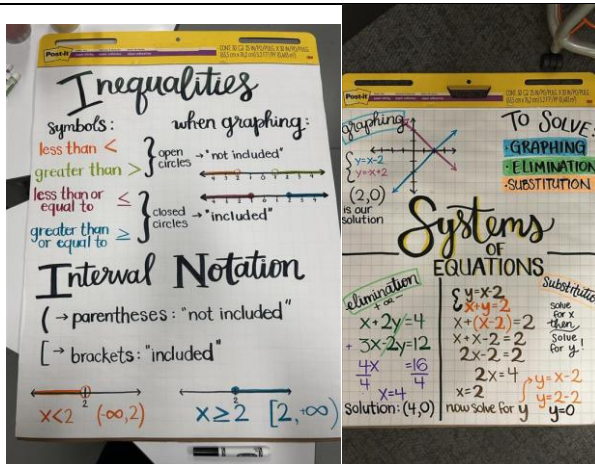 Post-it
Inequalities
symbols:
when graphing:
less than <
greater than >
open circles → "not included"
less than or equal to ≤
greater than or equal to ≥
closed circles → "included"
Interval Notation
( → parentheses: "not included"
[ → brackets: "included"
2
2
x<2 (-∞,2)
x≥2 [2,+∞)
Post-it
graphing
TO SOLVE:
·GRAPHING
·ELIMINATION
·SUBSTITUTION
(2,0)
is our
solution
Systems
OF
EQUATIONS
elimination
+ or -
x+2y=4
+ 3x-2y=12
4x =16
4 4
x=4
solution: (4,0)
y=x-2
x+y=2
x+(x-2)=2
x+x-2=2
2x-2=2
2x=4
x=2
now solve for y
solve
for x
then
solve
for y!
y=x-2
y=2-2
y=0